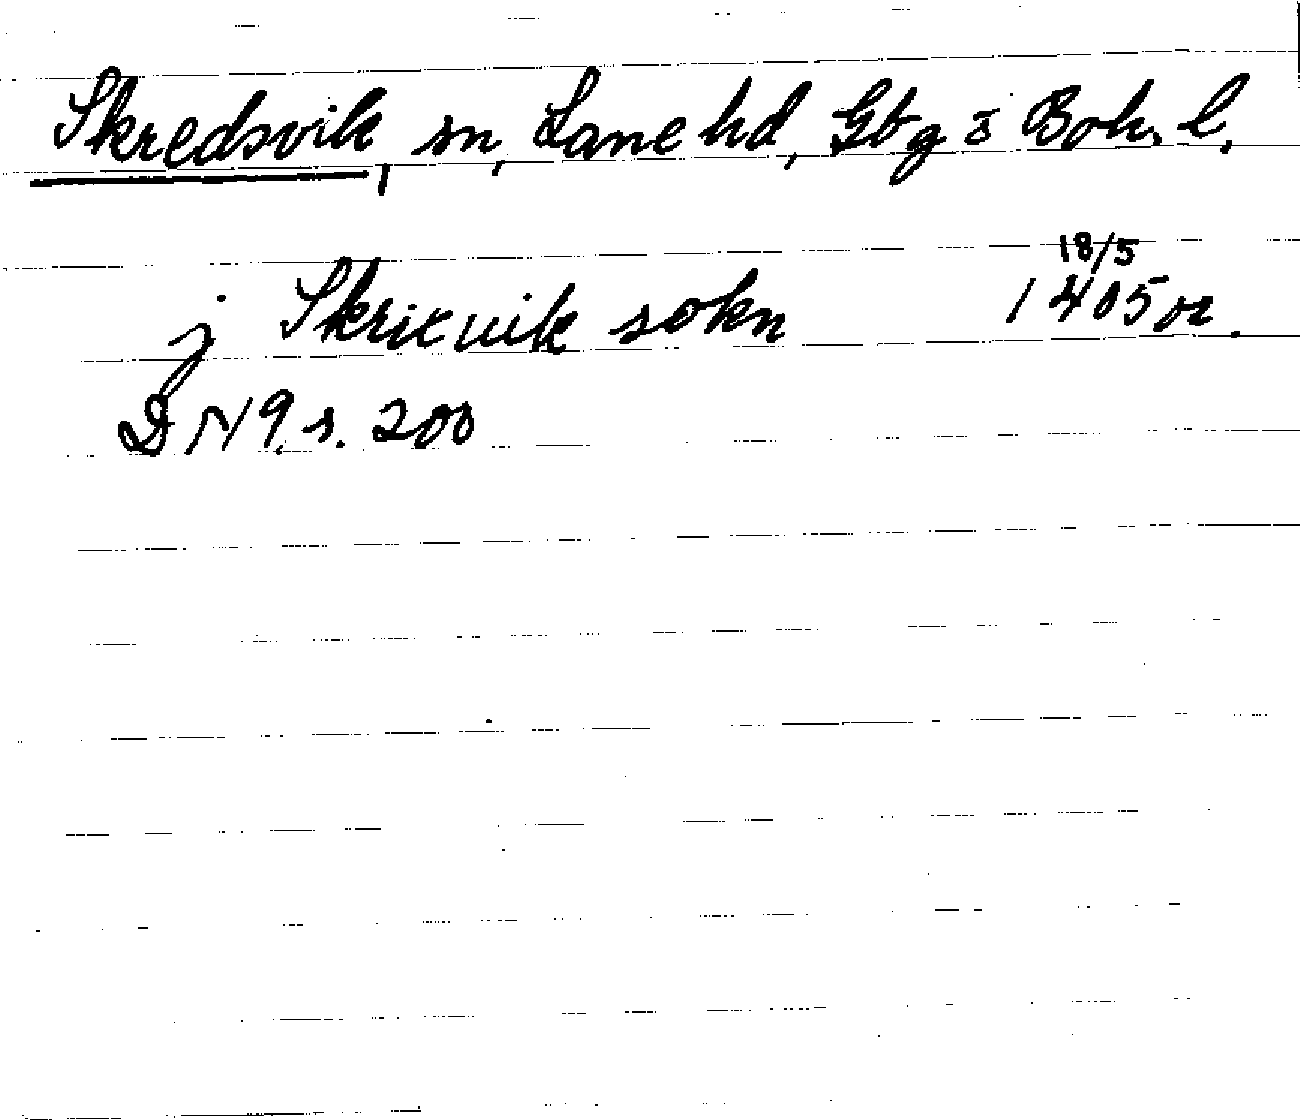 Skredsvik, sn, Lane hd, Gbg o Boh. l.
j Skricuik sokn 18/5 1405 or.
DN 9 s. 200